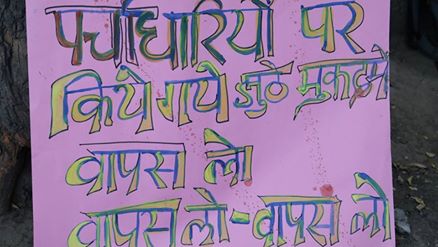 पर्चाधारियों पर
किये गये झुठे मुकद्दमे
वापस लो
वापस लो-वापस लो